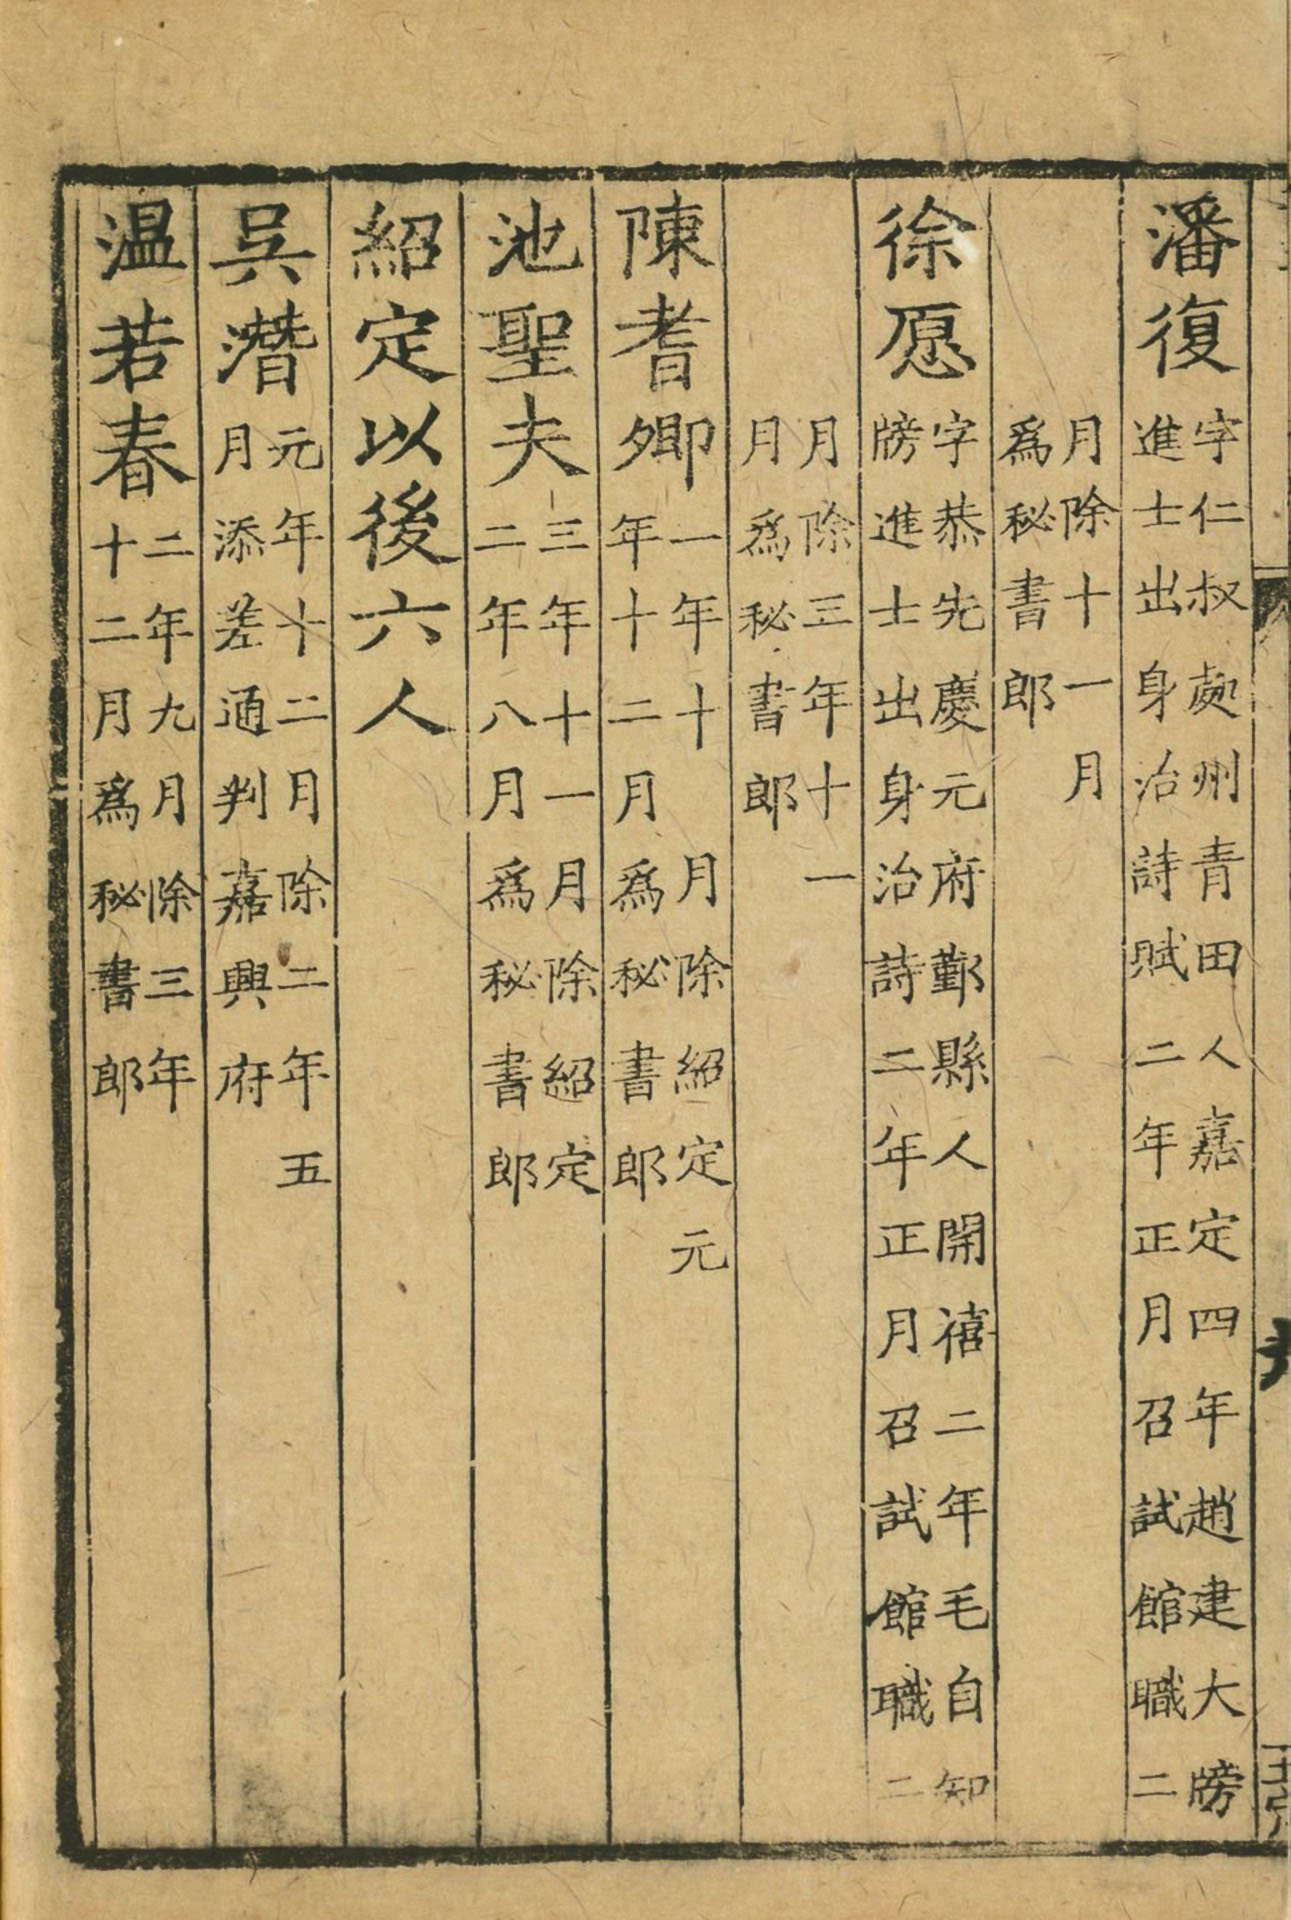 潘復字仁叔處州青田人嘉定四年趙建大牓
進士出身治詩賦二年正月召試館職二
月除十一月
爲秘書郎
徐愿字恭先慶元府鄞縣人開禧二年毛自知
牓進士出身治詩二年正月召試館職二
月除三年十一
月爲秘書郎
陳耆卿一年十月除紹定元
年十二月爲秘書郎
池聖夫三年十一月除紹定
二年八月爲秘書郎
紹定以後六人
吳潛元年十二月除二年五
月添差通判嘉興府
温若春二年九月除三年
十二月爲秘書郎